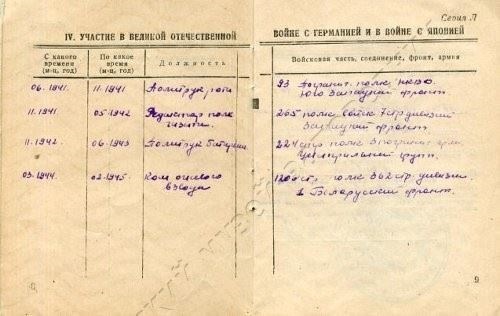 Серия Л
IV. УЧАСТИЕ В ВЕЛИКОЙ ОТЕЧЕСТВЕННОЙ
ВОЙНЕ С ГЕРМАНИЕЙ И В ВОЙНЕ С ЯПОНИЕЙ
С какого времени (м-ц, год)
По какое время (м-ц, год)
Должность
Войсковая часть, соединение, фронт, армия
06.1941. 11.1941 Политрук роты 93 погранот. полк НКВД
Юго Западный фронт
11.1941 05.1942 Редактор полк газеты. 265 полк войск
Западный фронт.
11.1942 06.1943 Политрук батареи 224 стр полк
групп.
03.1944. 02.1945. Ком огневого взвода 1206 стр. полк 362 стр дивизии.
1 Беларусский фронт.
9